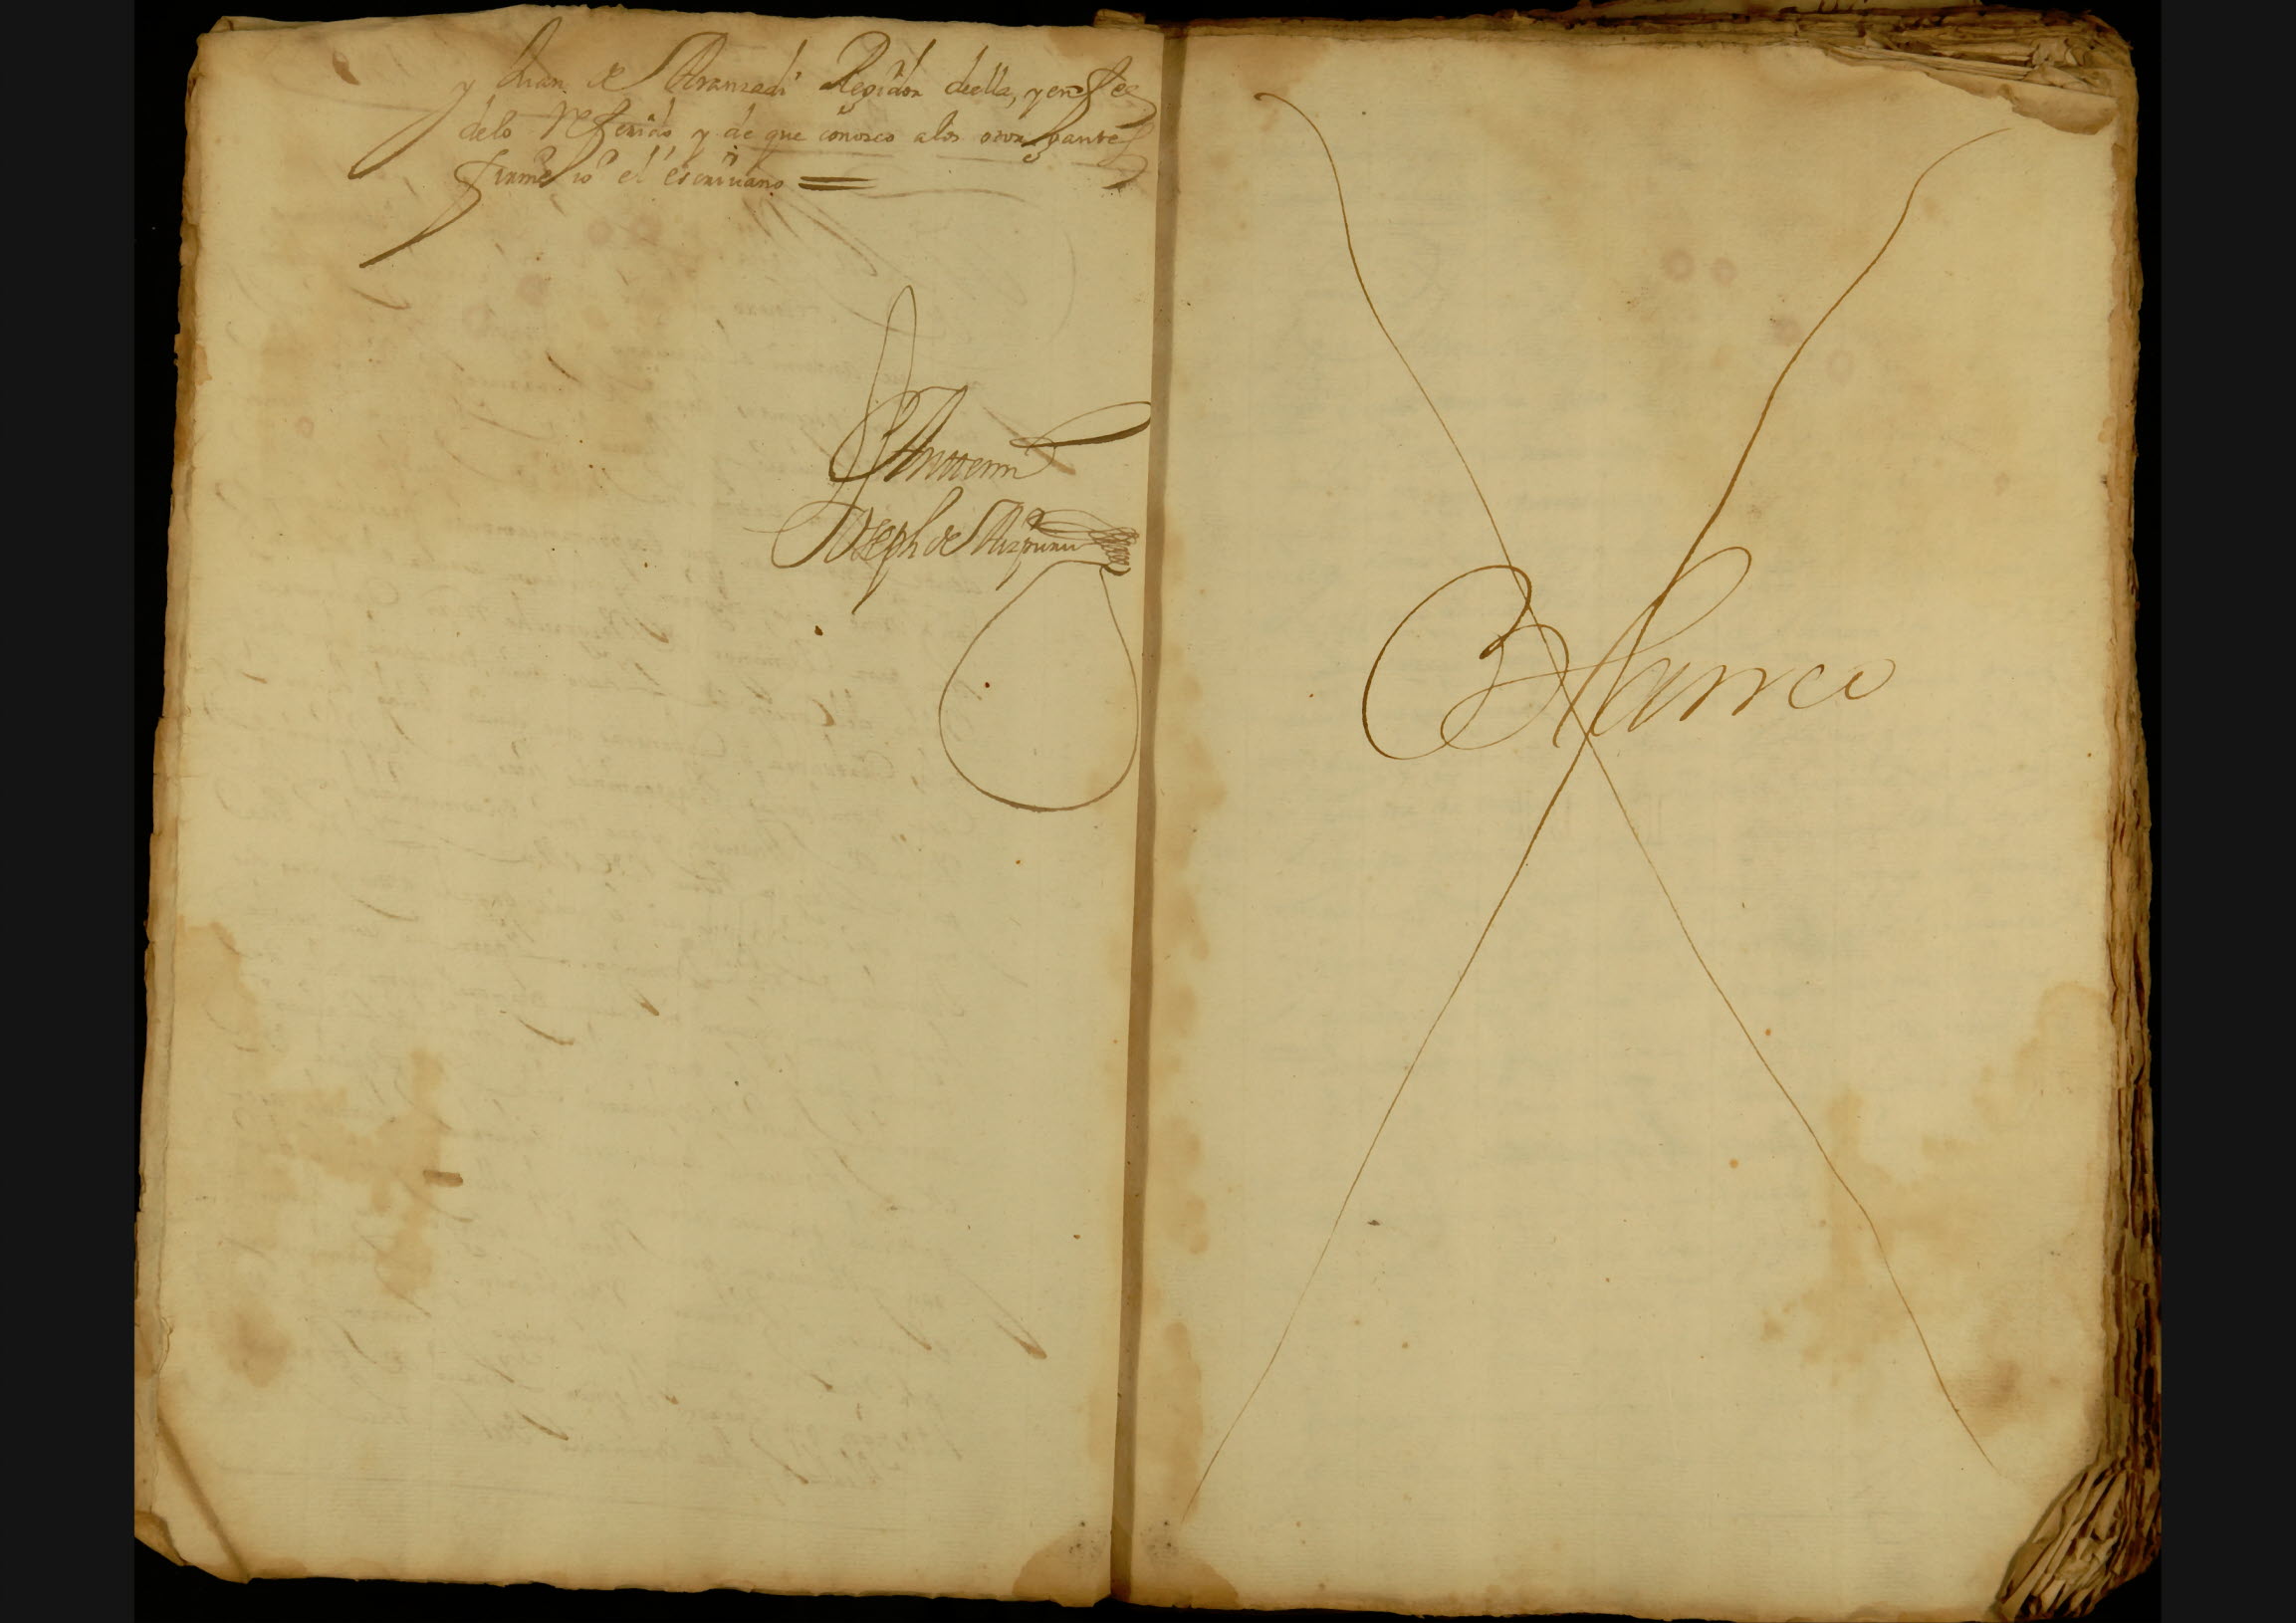 y Juan de Aranzadi Regidor della, y en fee
delo Referido y de que conosco alos otorgantes
firme io el escriuano
Antemi
Joseph de Aizpuru
Blanco